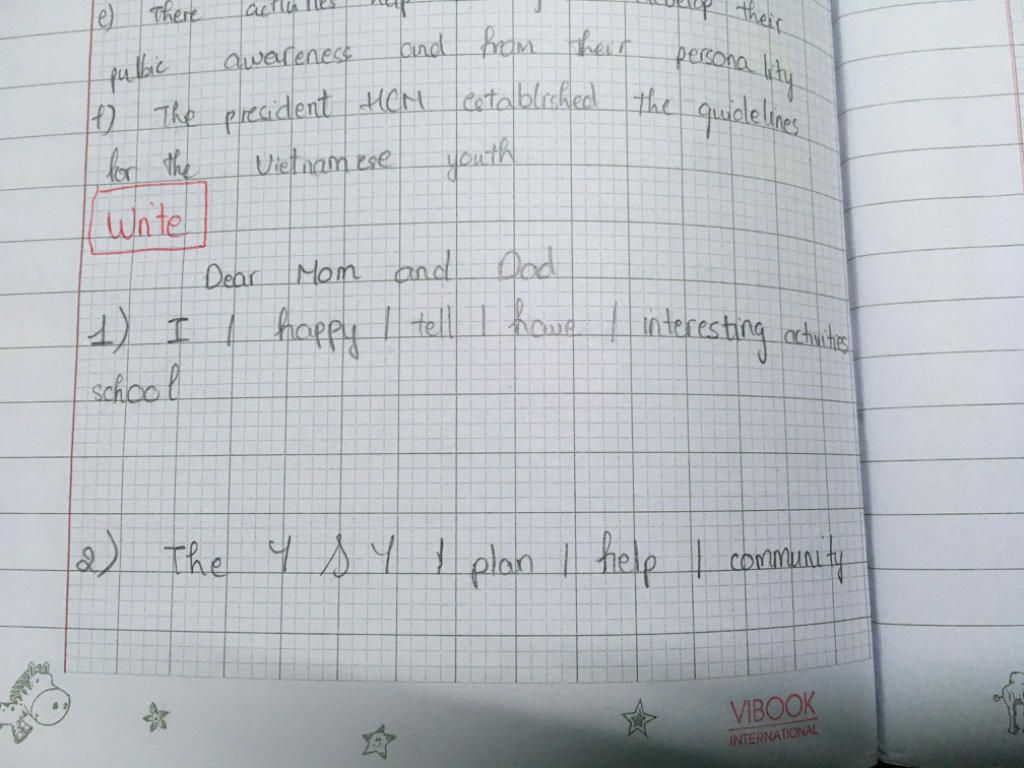 e) There activities help their
pulbic awareness and from their personality
f) The president HCM established the guidelines
for the Vietnamese youth
Write
Dear Mom and Dad
1) I / happy / tell / have / interesting activities
school
2) The Y & Y / plan / help / community
VIBOOK
INTERNATIONAL